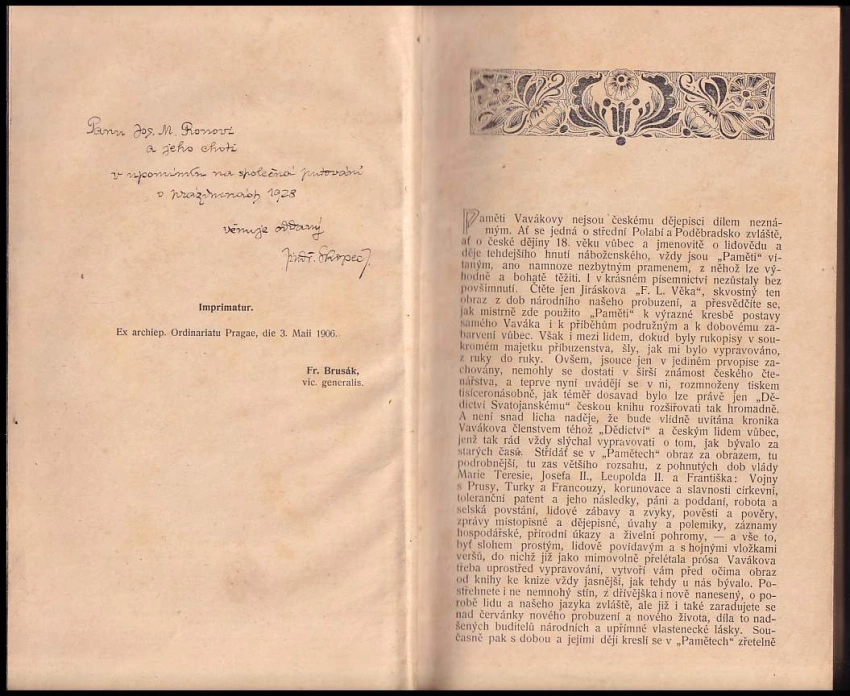 Panu Jos. M. Ronovi
a jeho choti
v upomínku na společná putování
o prázdninách 1928
věnuje oddaný
Jindř. Skopec J.
Imprimatur.
Ex archiep. Ordinariatu Pragae, die 3. Maii 1906.
Fr. Brusák,
vic. generalis.
Paměti Vavákovy nejsou českému dějepisci dílem nezná-
mým. Ať se jedná o střední Polabí a Poděbradsko zvláště,
ať o české dějiny 18. věku vůbec a jmenovitě o lidovědu a
děje tehdejšího hnutí náboženského, vždy jsou „Paměti“ ví-
taným, ano namnoze nezbytným pramenem, z něhož lze vý-
hodně a bohatě těžiti. I v krásném písemnictví nezůstaly bez
povšimnutí. Čtěte jen Jiráskova „F. L. Věka“, skvostný ten
obraz z dob národního našeho probuzení, a přesvědčíte se,
jak mistrně zde použito „Pamětí“ k výrazné kresbě postavy
samého Vaváka i k příběhům podružným a k dobovému za-
barvení vůbec. Však i mezi lidem, dokud byly rukopisy v sou-
kromém majetku příbuzenstva, šly, jak mi bylo vypravováno,
z ruky do ruky. Ovšem, jsouce jen v jediném prvopise za-
chovány, nemohly se dostati v širší známost českého čte-
nářstva, a teprve nyní uvádějí se v ni, rozmnoženy tiskem
tisíceronásobně, jak téměř dosavad bylo lze právě jen „Dě-
dictví Svatojanskému“ českou knihu rozšiřovati tak hromadně.
A není snad licha naděje, že bude vlídně uvítána kronika
Vavákova členstvem téhož „Dědictví“ a českým lidem vůbec,
jenž tak rád vždy slýchal vypravovati o tom, jak bývalo za
starých časů. Střídáť se v „Pamětech“ obraz za obrazem, tu
podrobnější, tu zas většího rozsahu, z pohnutých dob vlády
Marie Teresie, Josefa II., Leopolda II. a Františka: Vojny
s Prusy, Turky a Francouzy, korunovace a slavnosti církevní,
toleranční patent a jeho následky, páni a poddaní, robota a
selská povstání, lidové zábavy a zvyky, pověsti a pověry,
zprávy místopisné a dějepisné, úvahy a polemiky, záznamy
hospodářské, přírodní úkazy a živelní pohromy, — a vše to,
byť slohem prostým, lidově povídavým a s hojnými vložkami
veršů, do nichž již jako mimovolně přelétala prósa Vavákova
třeba uprostřed vypravování, vytvoří vám před očima obraz
od knihy ke knize vždy jasnější, jak tehdy u nás bývalo. Po-
střehnete i ne nemnohý stín, z dřívějška i nově nanesený, o po-
robě lidu a našeho jazyka zvláště, ale již i také zaradujete se
nad červánky nového probuzení a nového života, díla to nad-
šených buditelů národních a upřímné vlastenecké lásky. Sou-
časně pak s dobou a jejími ději kreslí se v „Pamětech“ zřetelně